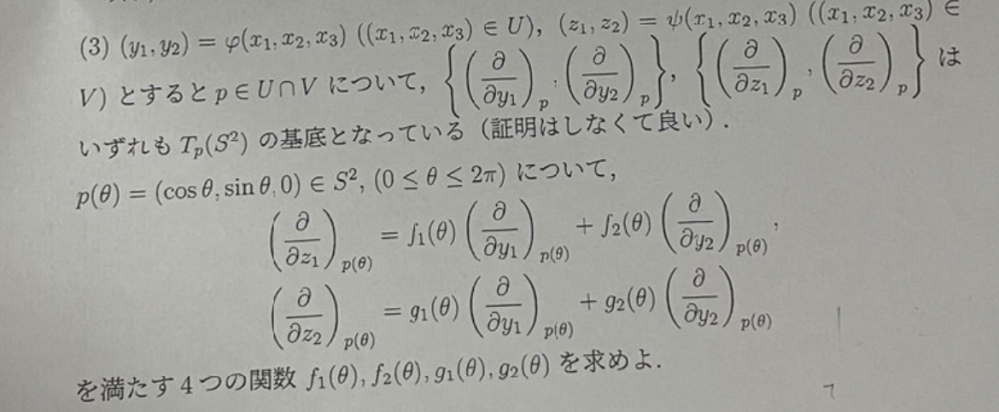 (3) (y₁, y₂) = φ(x₁, x₂, x₃) ((x₁, x₂, x₃) ∈ U), (z₁, z₂) = ψ(x₁, x₂, x₃) ((x₁, x₂, x₃) ∈
V) とすると p ∈ U ∩ V について, {(∂/∂y₁)ₚ, (∂/∂y₂)ₚ}, {(∂/∂z₁)ₚ, (∂/∂z₂)ₚ} は
いずれも Tₚ(S²) の基底となっている (証明はしなくて良い).
p(θ) = (cos θ, sin θ, 0) ∈ S², (0 ≤ θ ≤ 2π) について,
(∂/∂z₁)_{p(θ)} = f₁(θ) (∂/∂y₁)_{p(θ)} + f₂(θ) (∂/∂y₂)_{p(θ)},
(∂/∂z₂)_{p(θ)} = g₁(θ) (∂/∂y₁)_{p(θ)} + g₂(θ) (∂/∂y₂)_{p(θ)}
を満たす 4 つの関数 f₁(θ), f₂(θ), g₁(θ), g₂(θ) を求めよ.